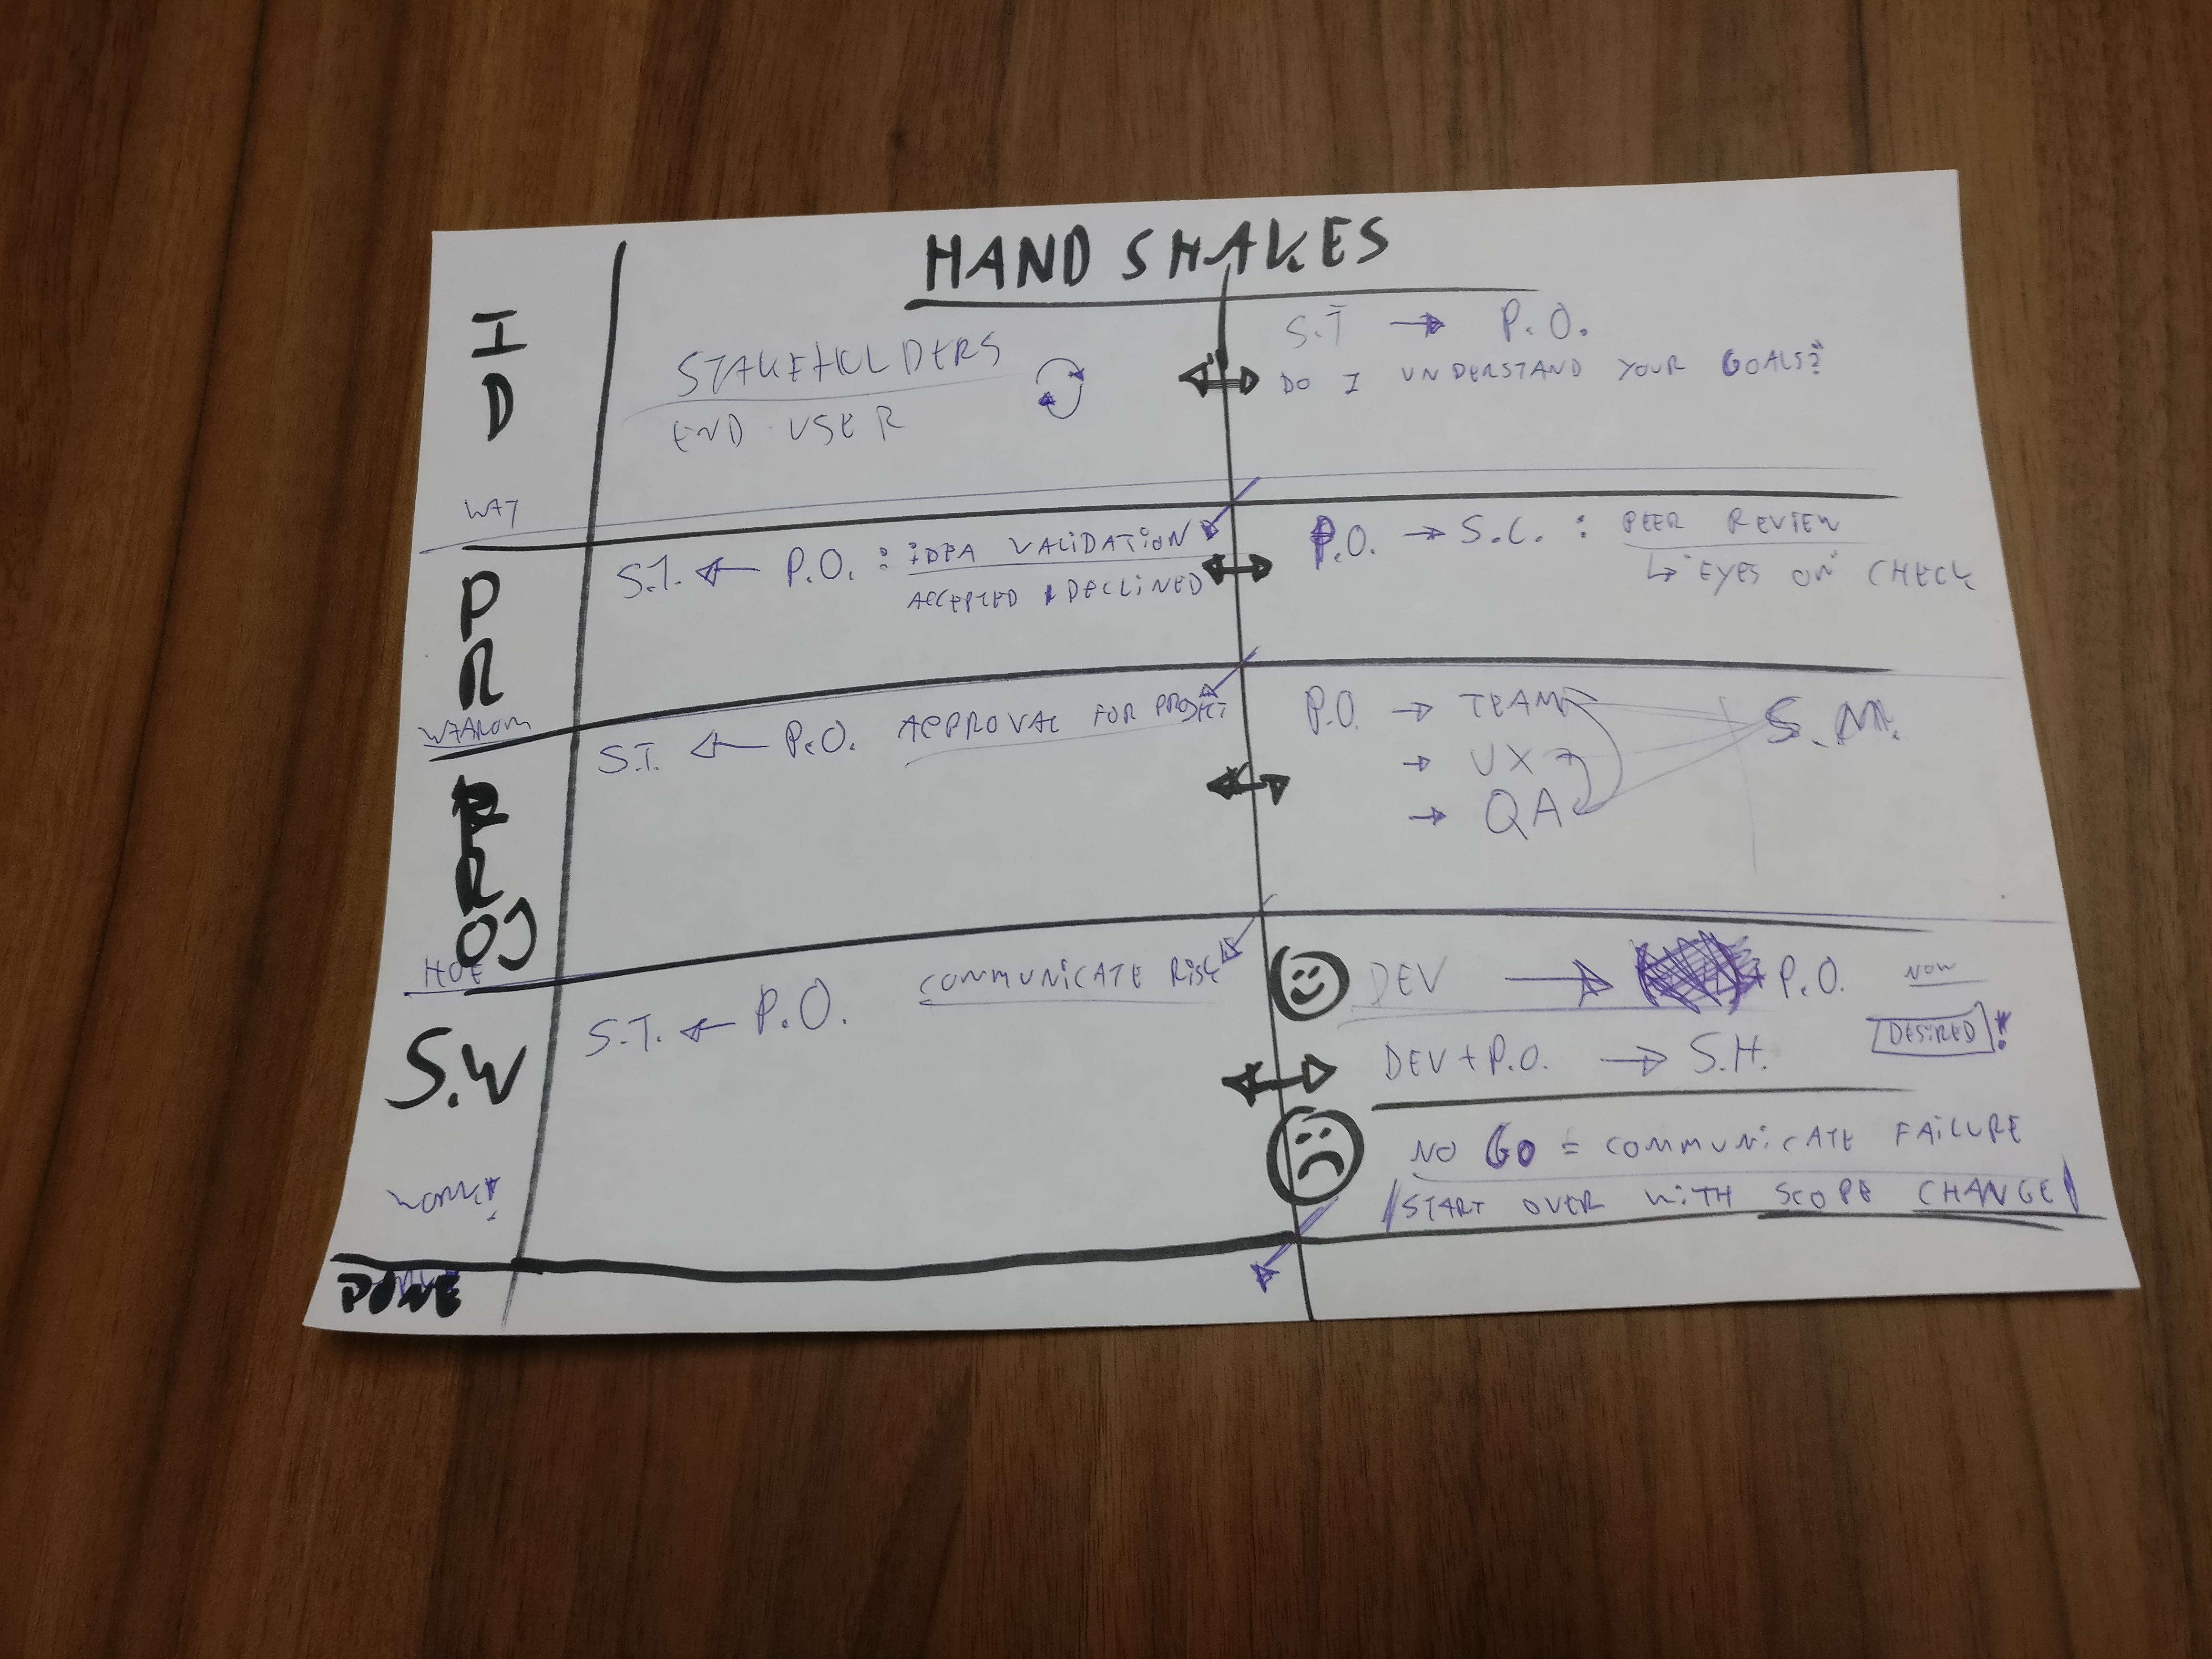 HAND SHAKES
I
D
WAT
STAKEHOLDERS
END USER
S.T → P.O.
DO I UNDERSTAND YOUR GOALS?
P
R
WAAROM
S.T. ← P.O. : IDEA VALIDATION
ACCEPTED & DECLINED
P.O. → S.C. : PEER REVIEW
↳ EYES ON CHECK
P
R
OJ
HOE
S.T. ← P.O. APPROVAL FOR PROJECT
P.O. → TEAM
→ UX
→ QA
S.M.
S.W
WORK!
S.T. ← P.O. COMMUNICATE RISK
DEV → P.O. NOW
DEV + P.O. → S.H. DESIRED!
NO GO = COMMUNICATE FAILURE
START OVER WITH SCOPE CHANGE
DONE